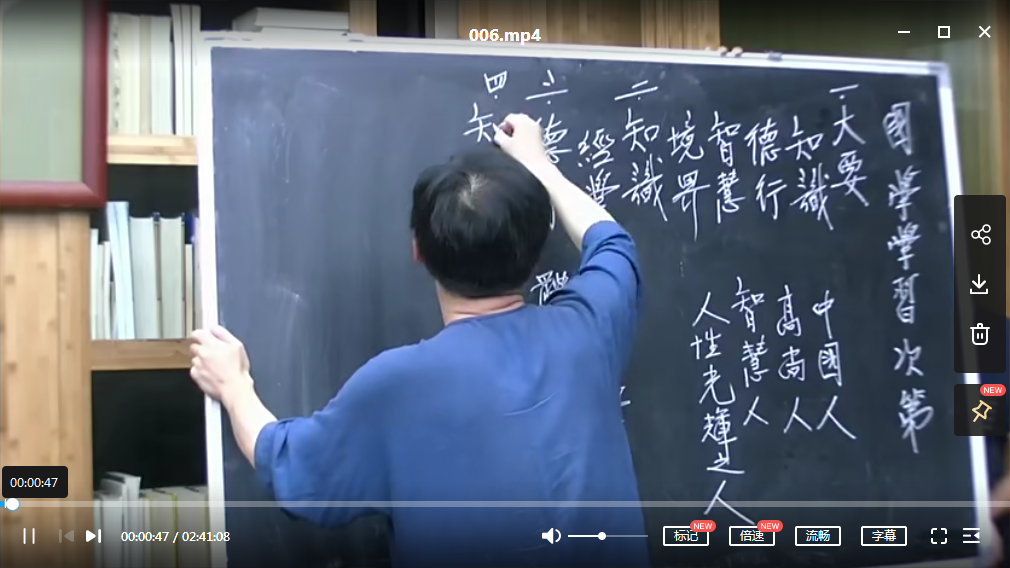 006.mp4
國學學習次第
一
大要
知識 中國人
德行 高尚人
智慧 智慧人
境界 人性光輝之人
二
知識
經學
三
德
四
知
00:00:47
00:00:47 / 02:41:08
标记
NEW
倍速
NEW
流畅
字幕
NEW